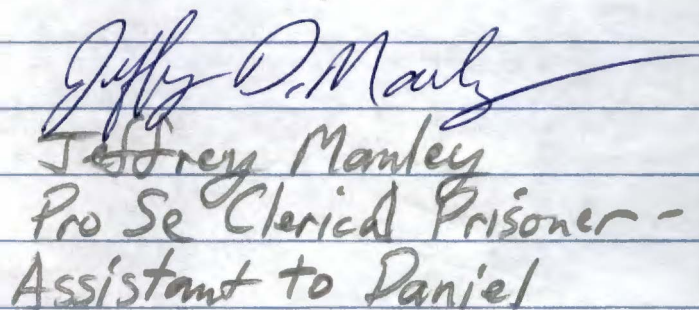 Jeffrey D. Manley
Jeffrey Manley
Pro Se Clerical Prisoner -
Assistant to Daniel